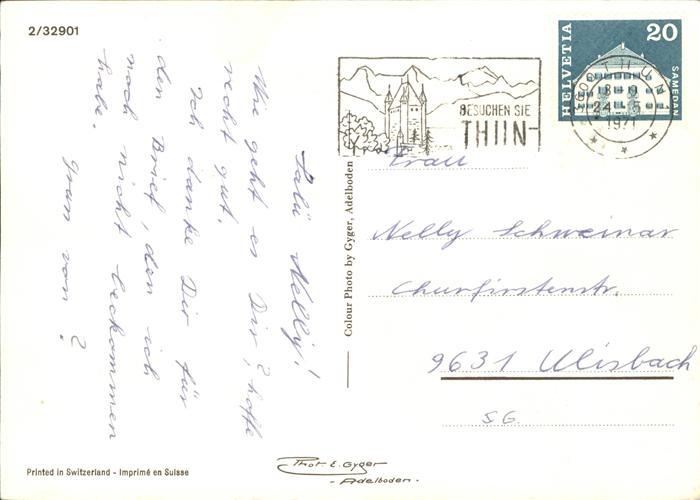 2/32901
Salü Nelly!
Wie geht es Dir, hoffe
recht gut.
Ich danke Dir für
den Brief, den ich
noch nicht beckommen
habe.
Gram von?
Printed in Switzerland - Imprimé en Suisse
Colour Photo by Gyger, Adelboden
Phot E. Gyger
- Adelboden -
BESUCHEN SIE
THUN
HELVETIA
20
SAMEDAN
THUN
24. 5
1971
Nelly Schweinar
Churfirstenstr.
9631 Ulisbach
SG.